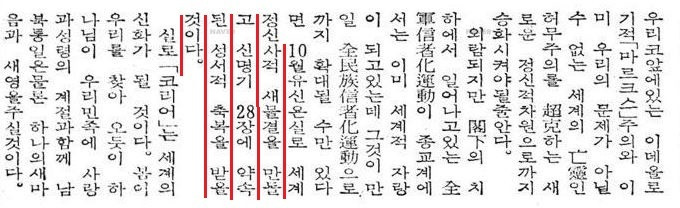 우리코앞에있는 이데올로
기적「마르크스」주의와 이
미 우리의 문제가 아닐
수 없는 세계의 亡靈인
허무주의를 超克하는 새
로운 정신적차원으로까지
승화시켜야될줄안다.
외람되지만 閣下의 치
하에서 일어나고있는 全
軍信者化運動이 종교계에
서는 이미 세계적 자랑
이 되고있는데 그것이 만
일 全民族信者化運動으로
까지 확대될 수만 있다
면 10월유신은실로 세계
정신사적 새물결을 만들
고 신명기 28장에 약속
된 성서적 축복을 받을
것이다.
실로「코리어」는 세계의
신화가 될 것이다. 봄이
우리를 찾아 오듯이 하
나님이 우리민족에 사랑
과성령의 계절과함께 남
북통일은물론 하나의새마
음과 새영을주실것이다.